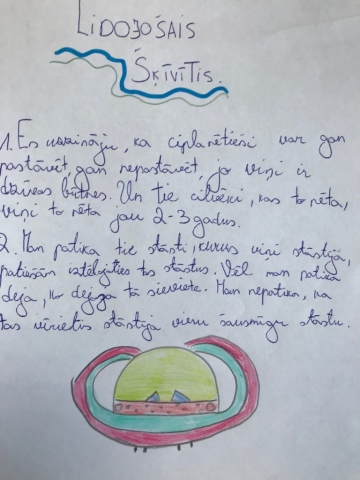 Lidojošais
Šķīvītis.
1. Es uzzināju, ka ciplanētieši var gan
pastāvēt, gan nepastāvēt, jo viņi ir
dzīvas būtnes. Un tie cilvēki, kas to rēta,
viņi to rēta jau 2-3 gadus.
2. Man patika tie stāsti, kurus viņi stāstīja,
patiešām iztēlojāties tos stāstus. Vēl man patika
deja, ko dejoja tā sieviete. Man nepatika, ka
tas vīrietis stāstīja vienu šausmīgu stāstu.